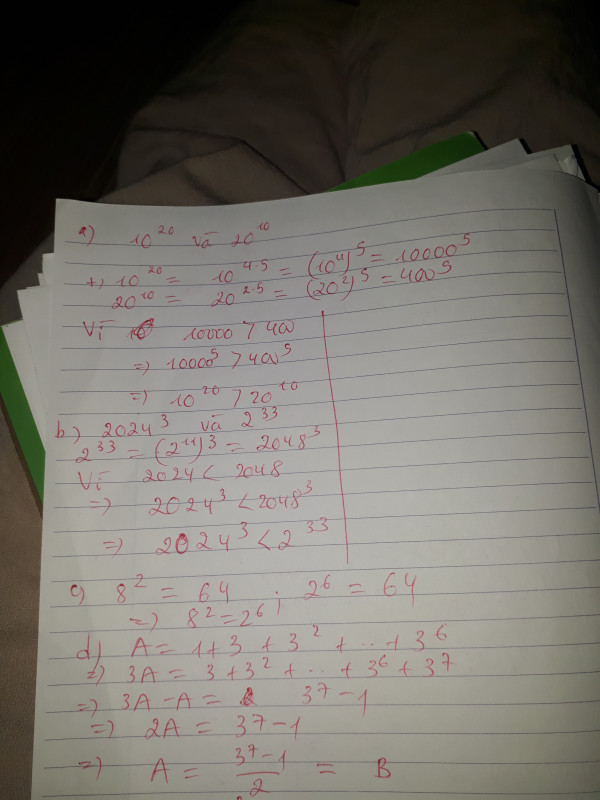 a) 10²⁰ và 20¹⁰
+) 10²⁰ = 10⁴·⁵ = (10⁴)⁵ = 10000⁵
20¹⁰ = 20²·⁵ = (20²)⁵ = 400⁵
Vì 10000 > 400
=) 10000⁵ > 400⁵
=) 10²⁰ > 20¹⁰
b) 2024³ và 2³³
2³³ = (2¹¹)³ = 2048³
Vì 2024 < 2048
=) 2024³ < 2048³
=) 2024³ < 2³³
c) 8² = 64 ; 2⁶ = 64
=) 8² = 2⁶
d) A = 1 + 3 + 3² + ... + 3⁶
=) 3A = 3 + 3² + ... + 3⁶ + 3⁷
=) 3A - A = 3⁷ - 1
=) 2A = 3⁷ - 1
=) A = (3⁷ - 1)/2 = B